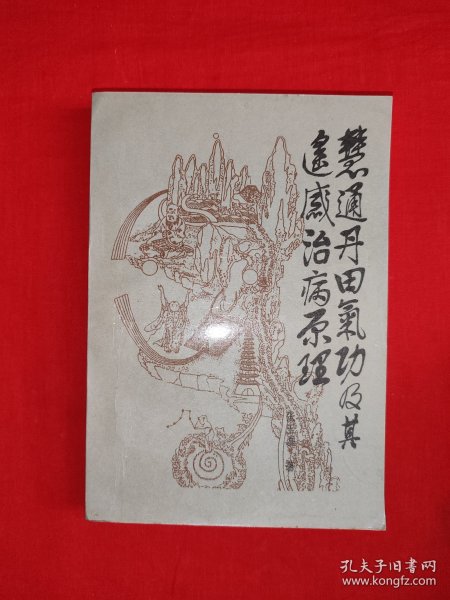 慧通丹田氣功及其
遥感治病原理
著
孔夫子旧书网
www.kongfz.com